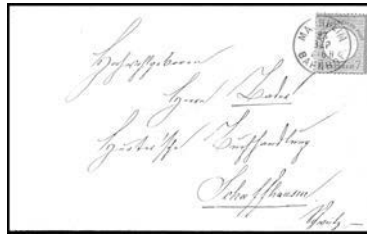 MANNHEIM
22
SEP
BAHNHOF
7
Hochwohlgeboren
Herrn Bader
Hurter'sche Buchhandlung
Schaffhausen
Schweiz